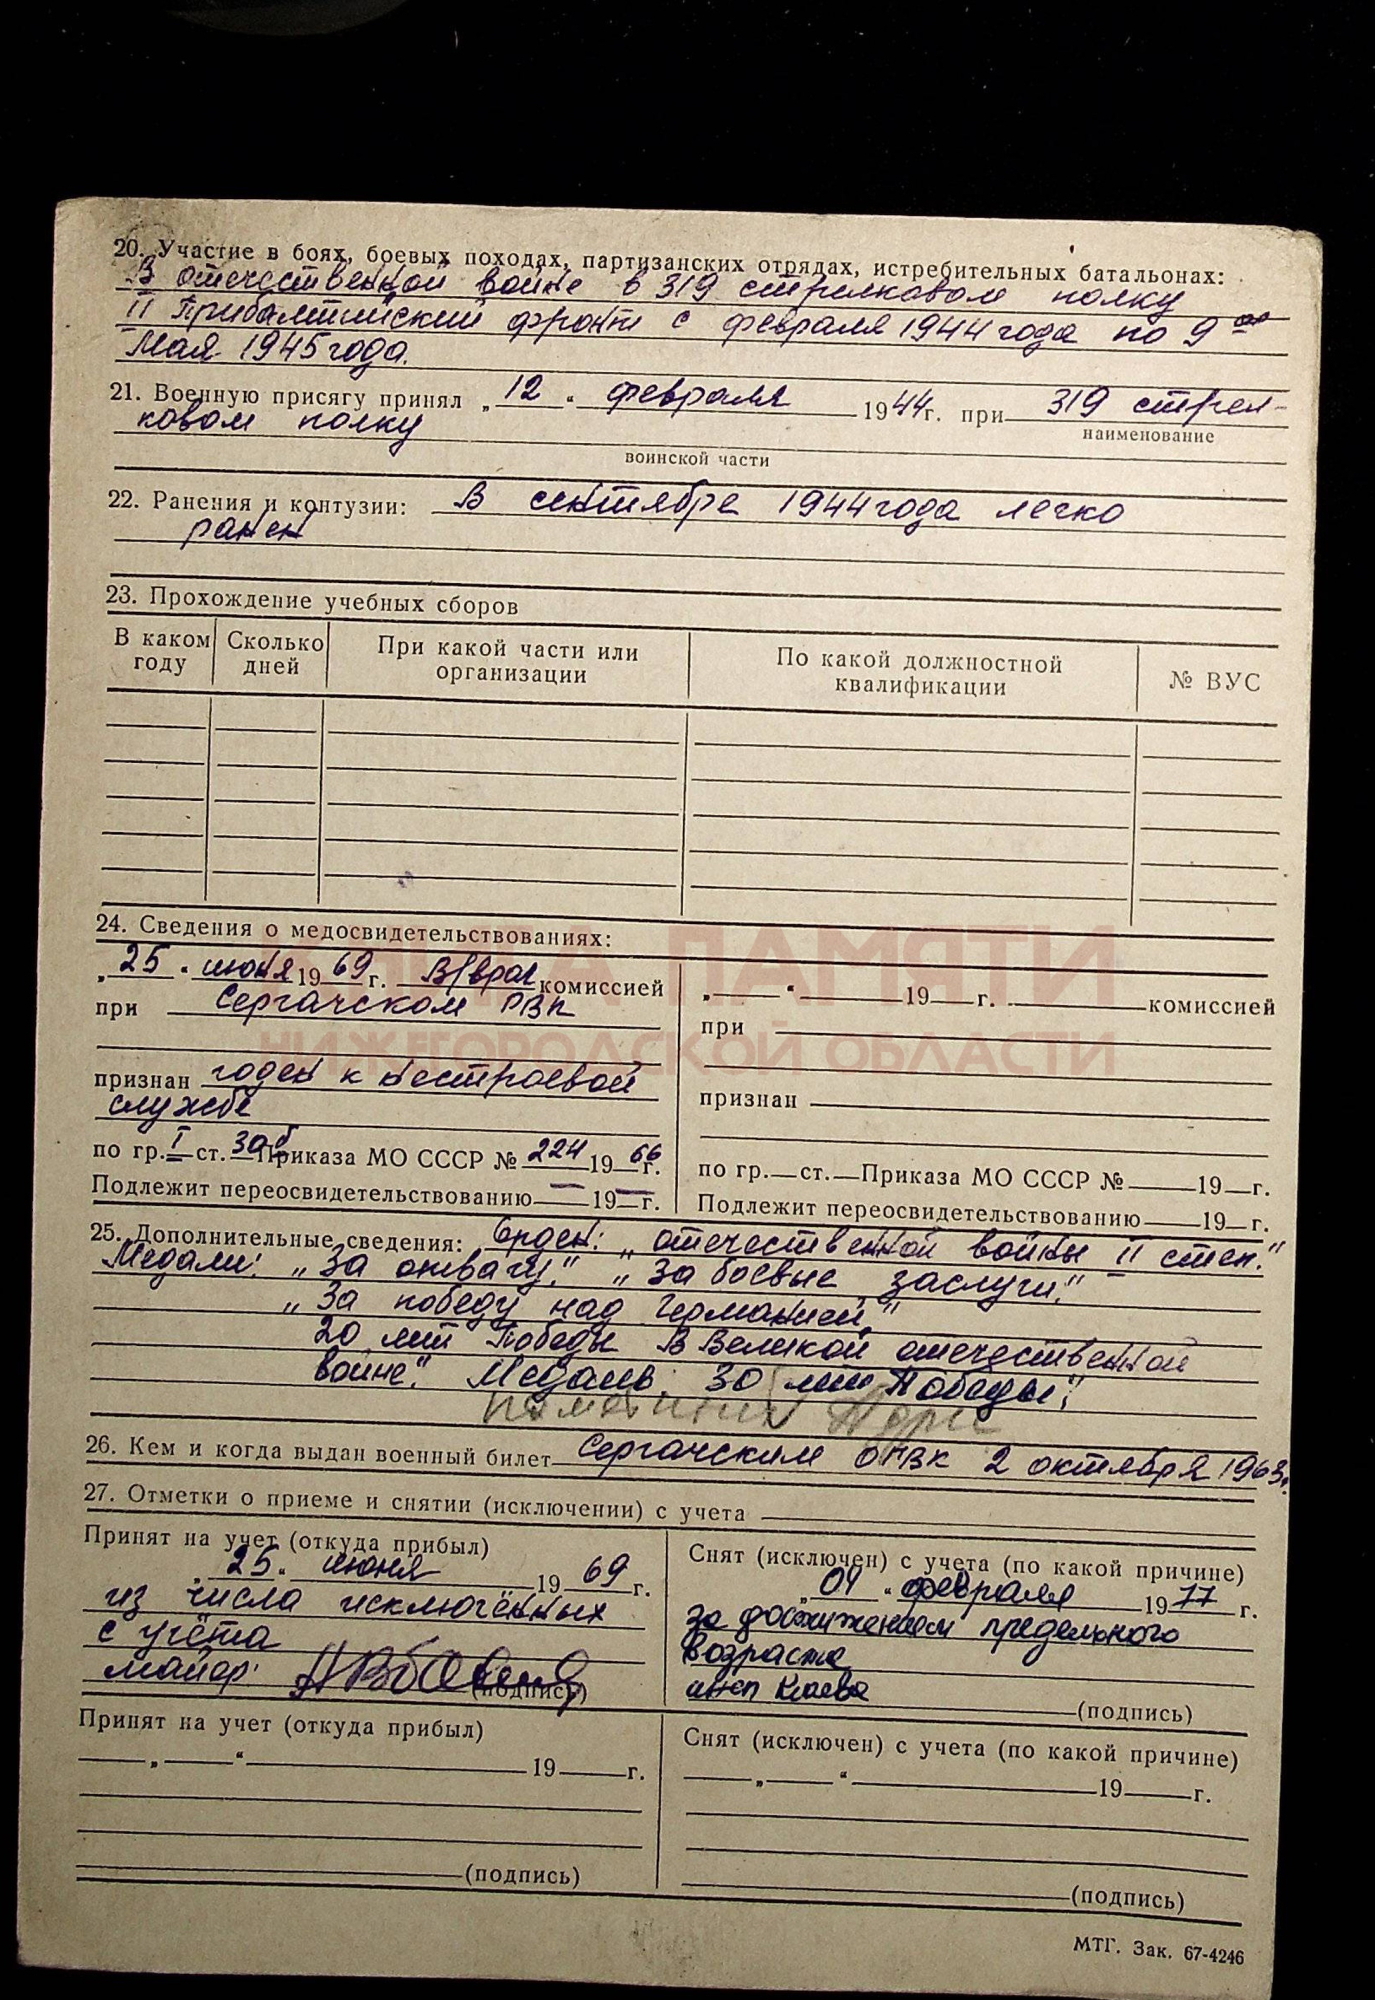 20. Участие в боях, боевых походах, партизанских отрядах, истребительных батальонах:
В отечественной войне в 319 стрелковом полку
II Прибалтийский фронт с февраля 1944 года по 9ое
Мая 1945 года.
21. Военную присягу принял „12“ февраля 1944 г. при 319 стрел-
ковом полку
наименование
воинской части
22. Ранения и контузии: В сентябре 1944 года легко
ранен
23. Прохождение учебных сборов
В каком году
Сколько дней
При какой части или организации
По какой должностной квалификации
№ ВУС
24. Сведения о медосвидетельствованиях:
„25“ июня 1969 г. В/врач комиссией
при Сергачском РВК
признан годен к нестроевой
службе
по гр. I ст. 30б Приказа МО СССР № 224 1966 г.
Подлежит переосвидетельствованию — 19 — г.
„ “ 19 г. комиссией
при
признан
по гр. ст. Приказа МО СССР № 19 г.
Подлежит переосвидетельствованию 19 г.
КНИГА ПАМЯТИ
НИЖЕГОРОДСКОЙ ОБЛАСТИ
25. Дополнительные сведения: Орден: „отечественной войны II степ."
Медали: „За отвагу." „За боевые заслуги."
„За победу над Германией."
20 лет Победы в Великой отечественной
войне". Медаль: 30 лет Победы".
26. Кем и когда выдан военный билет Сергачским ОГВК 2 октября 1963.
27. Отметки о приеме и снятии (исключении) с учета
Принят на учет (откуда прибыл)
„25“ июня 1969 г.
из числа исключённых
с учёта
майор
(подпись)
Снят (исключен) с учета (по какой причине)
„04“ февраля 1977 г.
за достижением предельного
возраста
инсп
(подпись)
Принят на учет (откуда прибыл)
„ “ 19 г.
(подпись)
Снят (исключен) с учета (по какой причине)
„ “ 19 г.
(подпись)
МТГ. Зак. 67-4246